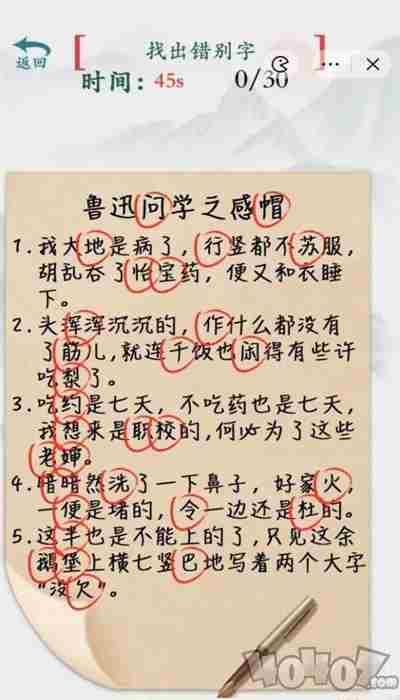 返回
找出错别字
时间：45s 0/30
鲁迅问学之感帽
1. 我大地是病了，行竖都不苏服，
胡乱吞了怡宝药，便又和衣睡
下。
2. 头浑浑沉沉的，作什么都没有
了筋儿，就连千饭也闲得有些许
吃梨了。
3. 吃约是七天，不吃药也是七天，
我想来是职校的，何必为了这些
老婶。
4. 暗暗然洗了一下鼻子，好家火，
一便是堵的，令一边还是杜的。
5. 这羊也是不能上的了，只见这余
鹅堡上横七竖巴地写着两个大字
“没欠”。